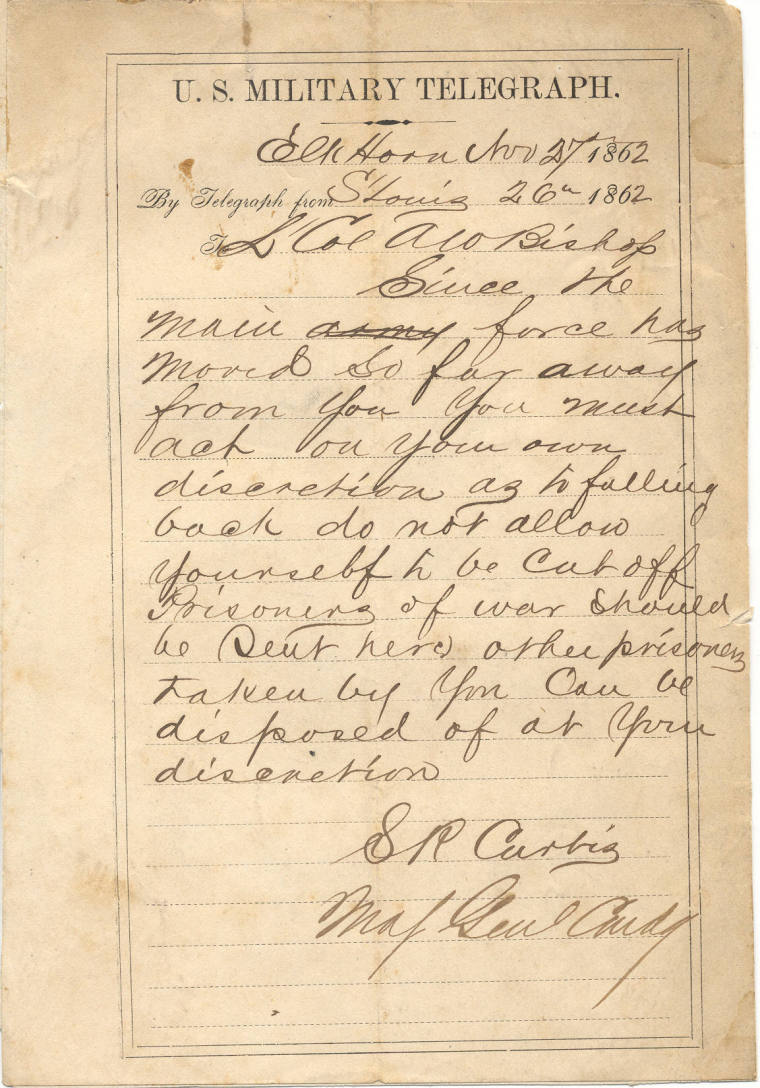 U. S. MILITARY TELEGRAPH.
Elk Horn Nov 27 1862
By Telegraph from St Louis 26th 1862
To Lt Col A W Bishop
Since the
main army force has
moved so far away
from you you must
act on your own
discretion as to falling
back do not allow
yourself to be cut off
Prisoners of war should
be sent here other prisoners
taken by you can be
disposed of at your
discretion
S R Curtis
Maj Genl Comdg